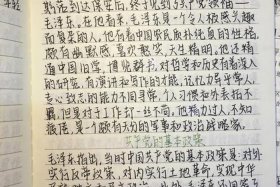 斯诺到达保安后,终于见到了共产党领袖——
毛泽东。在他看来,毛泽东是一个令人极感兴趣
而复杂的人,他有着中国农民质朴纯真的性格,
颇有幽默感,喜欢憨笑,天生精明,他还精
通中国旧学,博览群书,对哲学和历史有着深入
的研究,有演讲和写作的才能,记忆力异乎常人,
专心致志的能力不同寻常,个人习惯和外表不
羁,但是对于工作却一丝不苟,他精力过人,不知疲
倦,是一个颇有天分的军事和政治战略家。
共产党的基本政策
毛泽东指出,当时中国共产党的基本政策是:对外
实行反帝政策,对内实行土地革命,实现中华